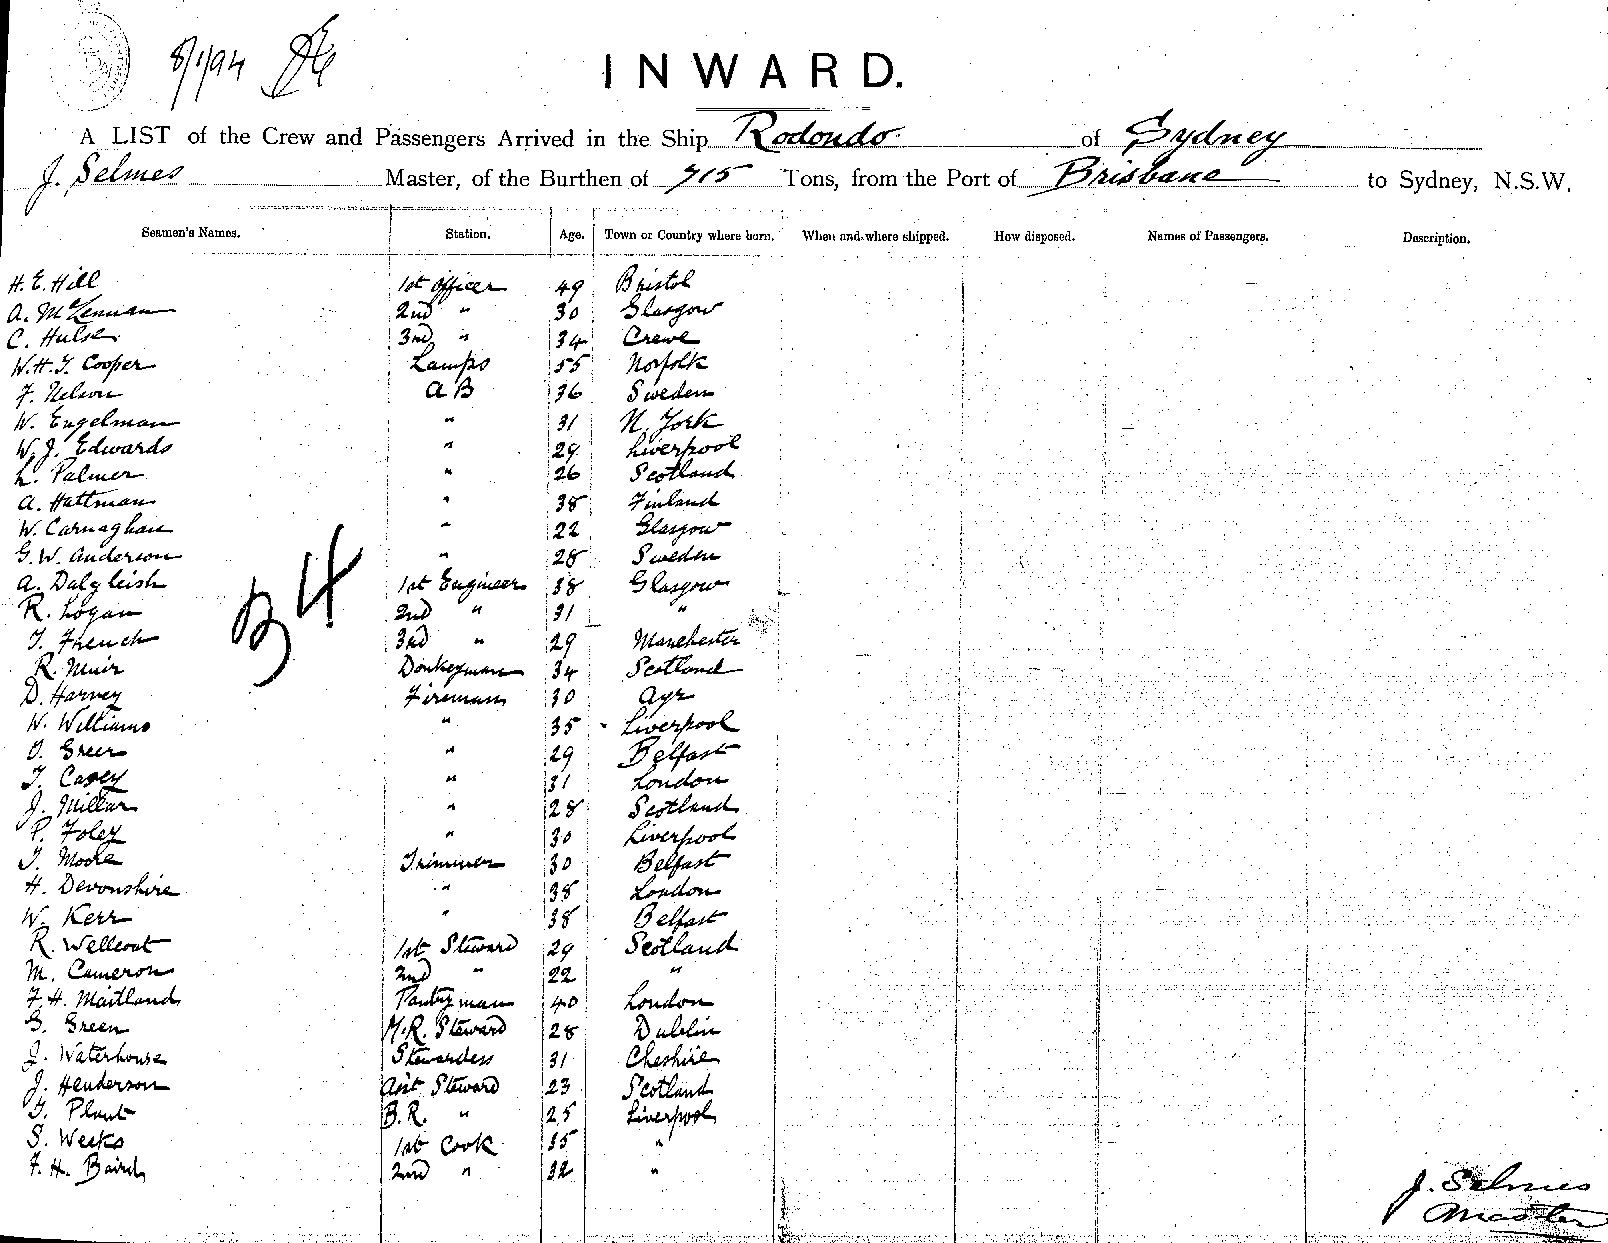 8/1/94
INWARD.
A LIST of the Crew and Passengers Arrived in the Ship Rodondo of Sydney
J. Selmes Master, of the Burthen of 715 Tons, from the Port of Brisbane to Sydney, N.S.W.
Seamen's Names. Station. Age. Town or Country where born. When and where shipped. How disposed. Names of Passengers. Description.
H. E. Hill 1st Officer 49 Bristol
A. McLennan 2nd " 30 Glasgow
C. Hulse 3rd " 34 Crewe
W. H. T. Cooper Lamps 55 Norfolk
F. Nelson AB 36 Sweden
W. Engelman " 31 N. York
W. J. Edwards " 29 Liverpool
L. Palmer " 26 Scotland
A. Hattman " 38 Finland
W. Carnaghan " 22 Glasgow
G. W. Anderson " 28 Sweden
A. Dalgleish 1st Engineer 38 Glasgow
R. Logan 2nd " 31 "
T. French 3rd " 29 Manchester
R. Muir Donkeyman 34 Scotland
D. Harvey Fireman 30 Ayr
W. Williams " 35 Liverpool
Greer " 29 Belfast
T. Casey " 31 London
J. Millar " 28 Scotland
P. Foley " 30 Liverpool
T. Moore Trimmer 30 Belfast
H. Devonshire " 38 London
W. Kerr " 38 Belfast
R. 1st Steward 29 Scotland
M. Cameron 2nd " 22 "
F. H. Maitland Pantryman 40 London
G. Green M.R. Steward 28 Dublin
J. Waterhouse Stewardess 31 Cheshire
J. Henderson Asst Steward 23 Scotland
T. Plant B.R. " 25 Liverpool
S. Weeks 1st Cook 35 "
F. H. Baird 2nd " 32 "
34
J. Selmes
Master